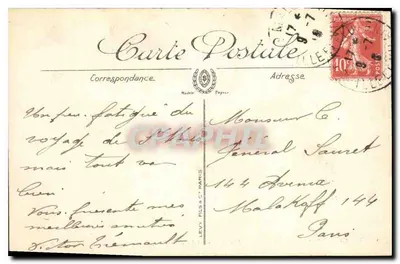 Carte Postale
Correspondance.
Adresse.
10c
Un peu fatigué du
voyage de
mais tout va
bien
Vous présente mes
meilleures amitiés
Victor
Monsieur C.
Général Sauret
144 Avenue
Malakoff 144
Paris
CARTE-POSTALE.COM